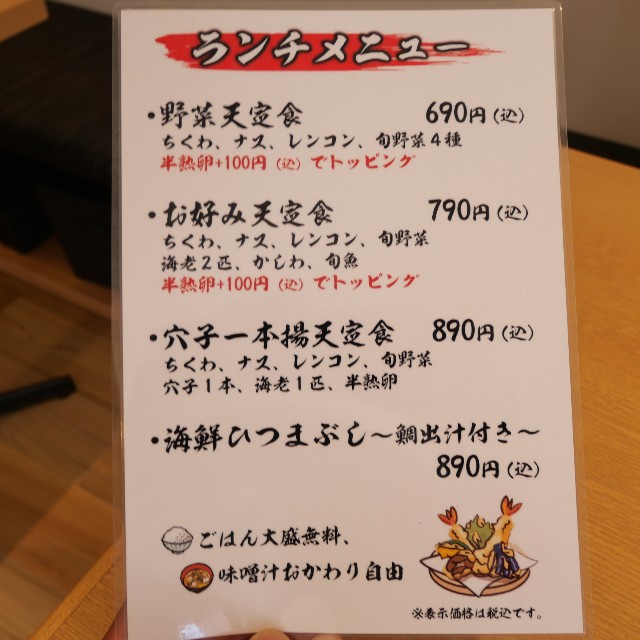 ランチメニュー
・野菜天定食 690円(込)
ちくわ、ナス、レンコン、旬野菜4種
半熟卵+100円(込)でトッピング
・お好み天定食 790円(込)
ちくわ、ナス、レンコン、旬野菜
海老2匹、かしわ、旬魚
半熟卵+100円(込)でトッピング
・穴子一本揚天定食 890円(込)
ちくわ、ナス、レンコン、旬野菜
穴子1本、海老1匹、半熟卵
・海鮮ひつまぶし〜鯛出汁付き〜
890円(込)
ごはん大盛無料、
味噌汁おかわり自由
※表示価格は税込です。